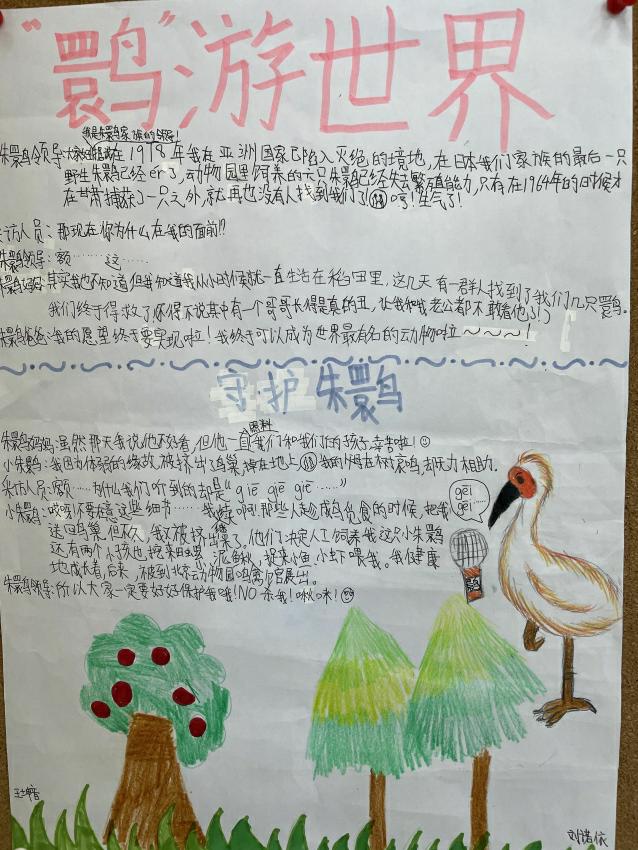 “鹮”游世界
我是朱鹮家族的领导!
朱鹮领导:在1978年我在亚洲国家已陷入灭绝的境地,在日本我们家族的最后一只
野生朱鹮已经死了,动物园里饲养的六只朱鹮已经失去繁殖能力,只有在1964年的时候才
在甘肃捕获了一只之外,就再也没有人找到我们了哼!生气了!
访人员:那现在你为什么在我的面前!?
朱鹮领导:额……这……
朱鹮妈妈:其实我也不知道但我知道我从小时候就一直生活在稻田里,这几天有一群人找到了我们几只鹮。
我们终于得救了不得不说其中有一个哥哥长得是真的丑,让我和我老公都不敢看他
朱鹮爸爸:我的愿望终于要实现啦!我终于可以成为世界最有名的动物啦~~~~!
守护朱鹮
朱鹮妈妈:虽然那天我说他不好看,但他一直照料我们和我们的孩子,辛苦啦!
小朱鹮:我因为体弱的缘故,被挤出鸟巢,掉在地上我的妈在树哀鸣,却无力相助.
采访人员:额……为什么我们听到的却是“giē giē giē……”
小朱鹮:哎哎不要在意这些细节……我啊!那些人趁成鸟觅食的时候,把我
送回鸟巢,但不久,我又被挤出巢了。他们决定人工饲养我这只小朱鹮
还有两个小孩也挖来田螺、泥鳅,捉来小鱼、小虾喂我。我健康
地成长着,后来,被到北京动物园鸣禽馆展出。
朱鹮领导:所以大家一定要好好保护我哦!NO杀我!啾咪!
gēi
gēi……
刘诺依